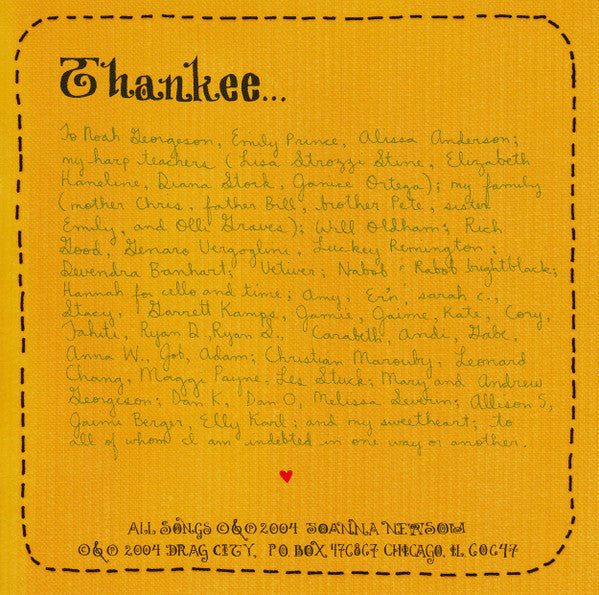 Thankee...
To Noah Georgeson, Emily Prince, Alissa Anderson;
my harp teachers (Lisa Strozzi Stine, Elizabeth
Hansline, Diana Stork, Janice Ortega); my family
(mother Chris, father Bill, brother Pete, sister
Emily, and Olli Graves); Will Oldham; Rich
Good, Genaro Vergoglini, Luckey Remington;
Devendra Banhart; Vetiver; Nabob & Rabob brightblack;
Hannah for cello and time; Amy, Erin, sarah c.,
Stacy, Garrett Kamps, Jamie, Jaime, Kate, Cory,
Tahiti, Ryan D, Ryan S., Carabeth, Andi, Gabe,
Anna W., Gob, Adam; Christian Marouby, Leonard
Chang, Maggi Payne, Les Stuck; Mary and Andrew
Georgeson; Dan K, Dan O, Melissa Severin; Allison S,
Jaime Berger, Elly Karl; and my sweetheart; to
all of whom I am indebted in one way or another.
ALL SONGS ©&℗ 2004 JOANNA NEWSOM
©&℗ 2004 DRAG CITY, PO BOX 476867 CHICAGO, IL 60647